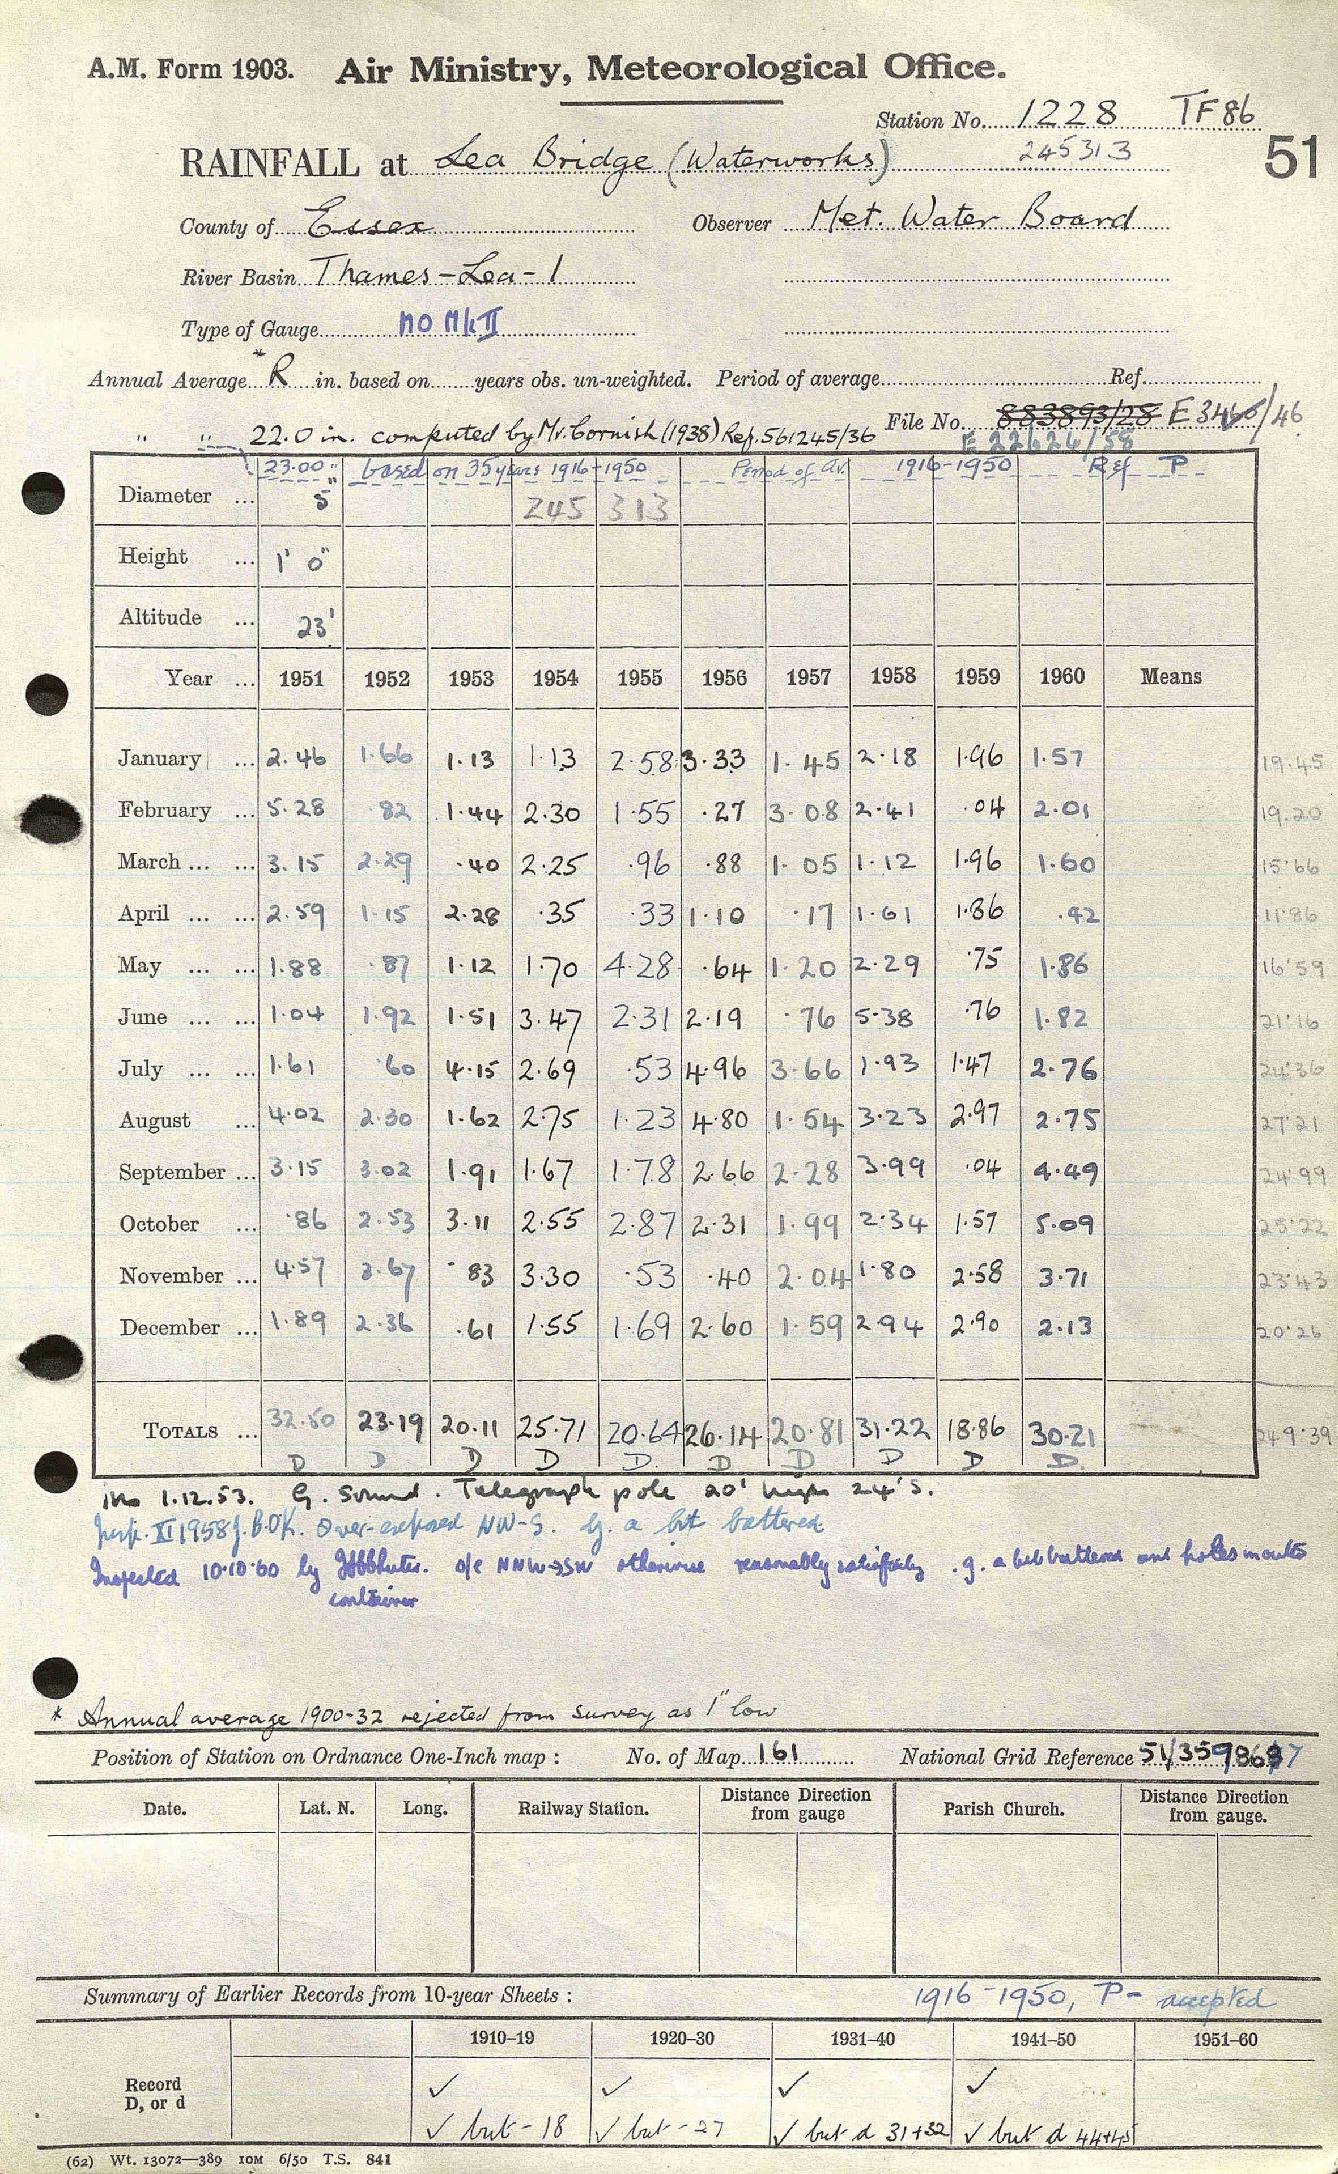 A.M. Form 1903. Air Ministry, Meteorological Office.
Station No. 1228 TF86
RAINFALL at Lea Bridge (Waterworks) 245313 51
County of Essex Observer Met. Water Board
River Basin Thames-Lea-1
Type of Gauge MO MkII
Annual Average *R in. based on years obs. un-weighted. Period of average Ref.
" " 22.0 in. computed by Mr. Cornish (1938) Ref. 561245/36 File No. 883893/28 E 3466/46
E 22624/58
23.00" based on 35 years 1916-1950 Period of Av. 1916-1950 Ref P
Diameter ... 5" 245 313
Height ... 1' 0"
Altitude ... 23'
Year ... 1951 1952 1953 1954 1955 1956 1957 1958 1959 1960 Means
January ... 2.46 1.66 1.13 1.13 2.58 3.33 1.45 2.18 1.96 1.57 19.45
February ... 5.28 .82 1.44 2.30 1.55 .27 3.08 2.41 .04 2.01 19.20
March ... ... 3.15 2.29 .40 2.25 .96 .88 1.05 1.12 1.96 1.60 15.66
April ... ... 2.59 1.15 2.28 .35 .33 1.10 .17 1.61 1.86 .42 11.86
May ... ... 1.88 .87 1.12 1.70 4.28 .64 1.20 2.29 .75 1.86 16.59
June ... ... 1.04 1.92 1.51 3.47 2.31 2.19 .76 5.38 .76 1.82 21.16
July ... ... 1.61 .60 4.15 2.69 .53 4.96 3.66 1.93 1.47 2.76 24.36
August ... 4.02 2.30 1.62 2.75 1.23 4.80 1.54 3.23 2.97 2.75 27.21
September ... 3.15 3.02 1.91 1.67 1.78 2.66 2.28 3.99 .04 4.49 24.99
October ... .86 2.53 3.11 2.55 2.87 2.31 1.99 2.34 1.57 5.09 25.22
November ... 4.57 3.67 .83 3.30 .53 .40 2.04 1.80 2.58 3.71 23.43
December ... 1.89 2.36 .61 1.55 1.69 2.60 1.59 2.94 2.90 2.13 20.26
TOTALS ... 32.50 23.19 20.11 25.71 20.64 26.14 20.81 31.22 18.86 30.21 249.39
D D D D D. D D D D D.
Ins 1.12.53. G. Sound. Telegraph pole 20' high 24' S.
Insp. XI 1958 J.B. OK. Over-exposed NW-S. G. a bit battered
Inspected 10.10.60 by o/e NNW→SW otherwise reasonably satisfactory. g. a bit battered and
container
* Annual average 1900-32 rejected from survey as 1" low
Position of Station on Ordnance One-Inch map : No. of Map 161 National Grid Reference 51/359
Date. Lat. N. Long. Railway Station. Distance Direction from gauge Parish Church. Distance Direction from gauge.
Summary of Earlier Records from 10-year Sheets : 1916-1950, P- accepted
1910-19 1920-30 1931-40 1941-50 1951-60
Record ✓ ✓ ✓ ✓
D, or d ✓ but -18 ✓ but -27 ✓ but d 31+32 ✓ but d 44+45
(62) Wt. 13072—389 10M 6/50 T.S. 841